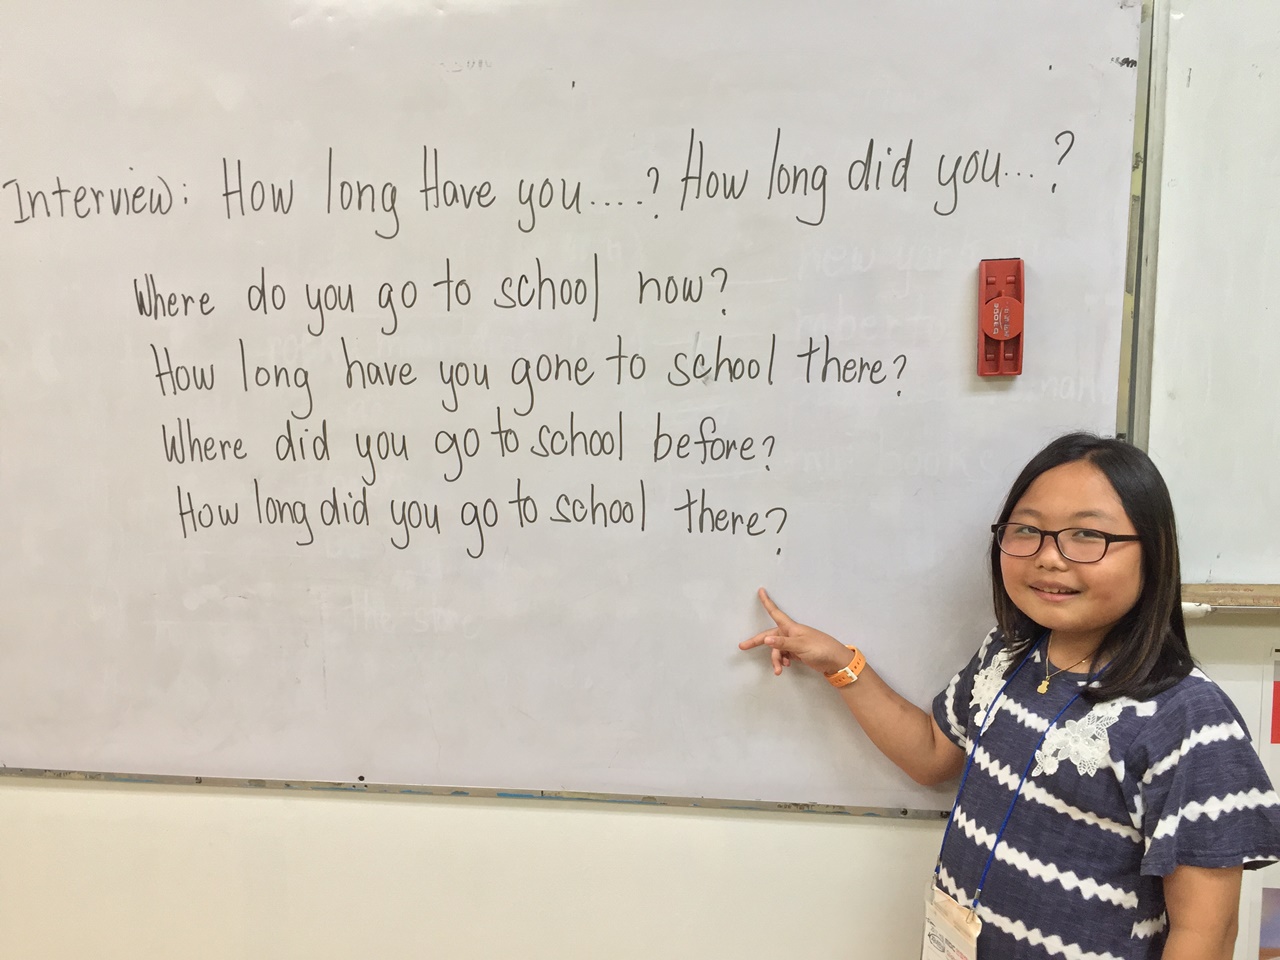 Interview: How long Have you....? How long did you...?
Where do you go to school now?
How long have you gone to school there?
Where did you go to school before?
How long did you go to school there?